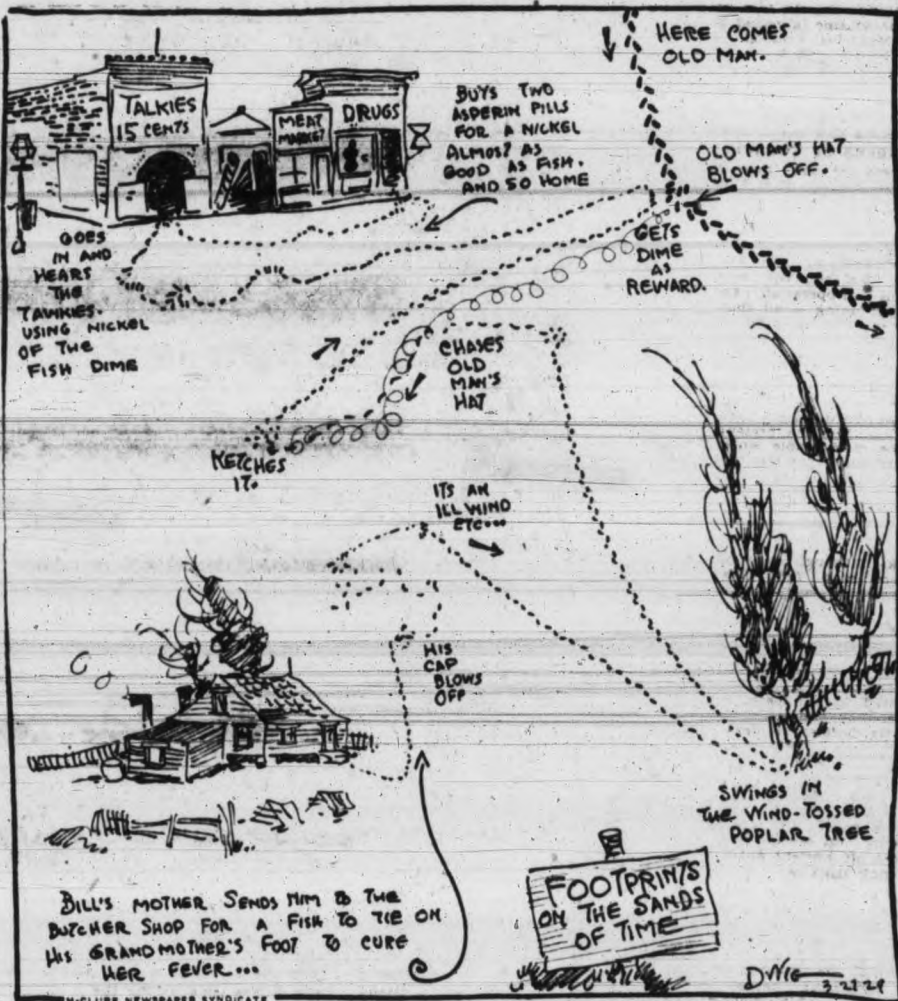 HERE COMES
OLD MAN.
TALKIES
15 CENTS
MEAT
MARKET
DRUGS
BUYS TWO
ASPERIN PILLS
FOR A NICKEL
ALMOST AS
GOOD AS FISH.
AND SO HOME
OLD MAN'S HAT
BLOWS OFF.
GETS
DIME
AS
REWARD.
GOES
IN AND
HEARS
THE
TAWKIES.
USING NICKEL
OF THE
FISH DIME
CHASES
OLD
MAN'S
HAT
KETCHES
IT.
ITS AN
ILL WIND
ETC...
HIS
CAP
BLOWS
OFF
SWINGS IN
THE WIND-TOSSED
POPLAR TREE
BILL'S MOTHER SENDS HIM TO THE
BUTCHER SHOP FOR A FISH TO TIE ON
HIS GRANDMOTHER'S FOOT TO CURE
HER FEVER...
FOOTPRINTS
ON THE SANDS
OF TIME
DWIG
McCLURE NEWSPAPER SYNDICATE